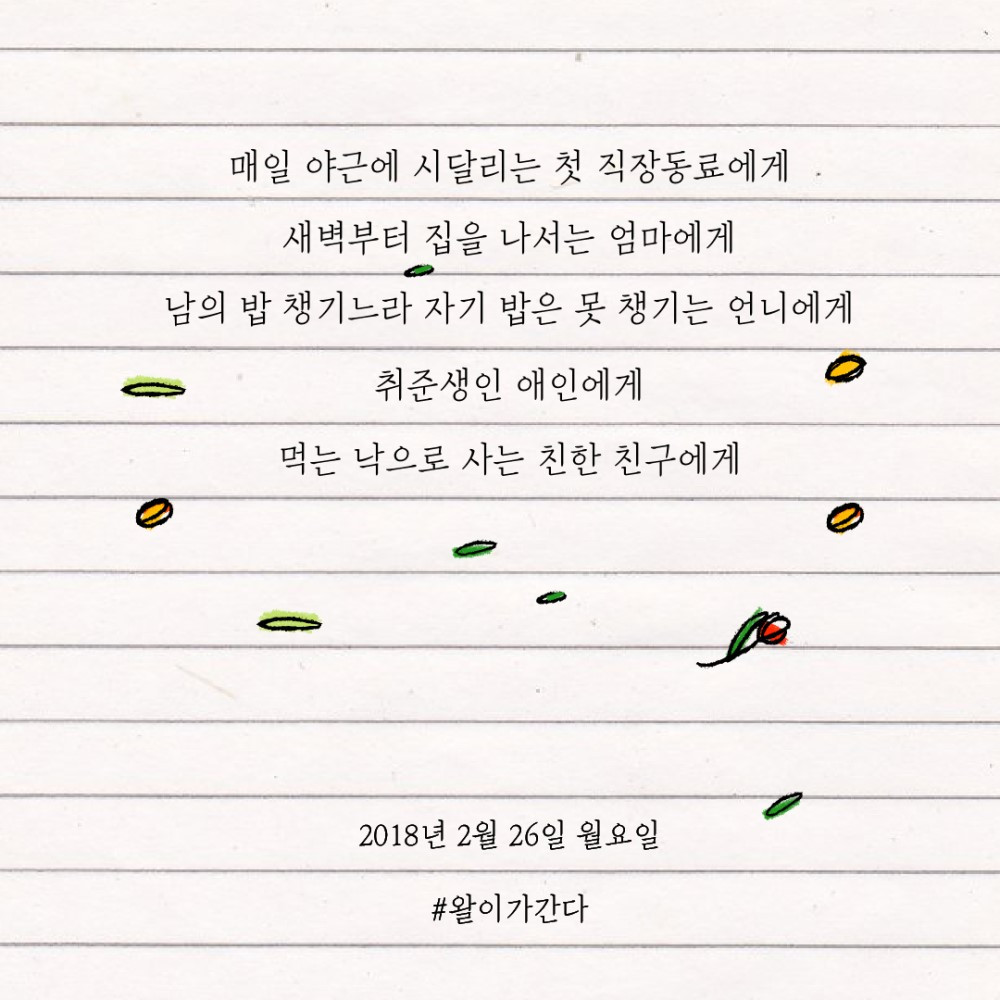 매일 야근에 시달리는 첫 직장동료에게
새벽부터 집을 나서는 엄마에게
남의 밥 챙기느라 자기 밥은 못 챙기는 언니에게
취준생인 애인에게
먹는 낙으로 사는 친한 친구에게
2018년 2월 26일 월요일
#왈이가간다